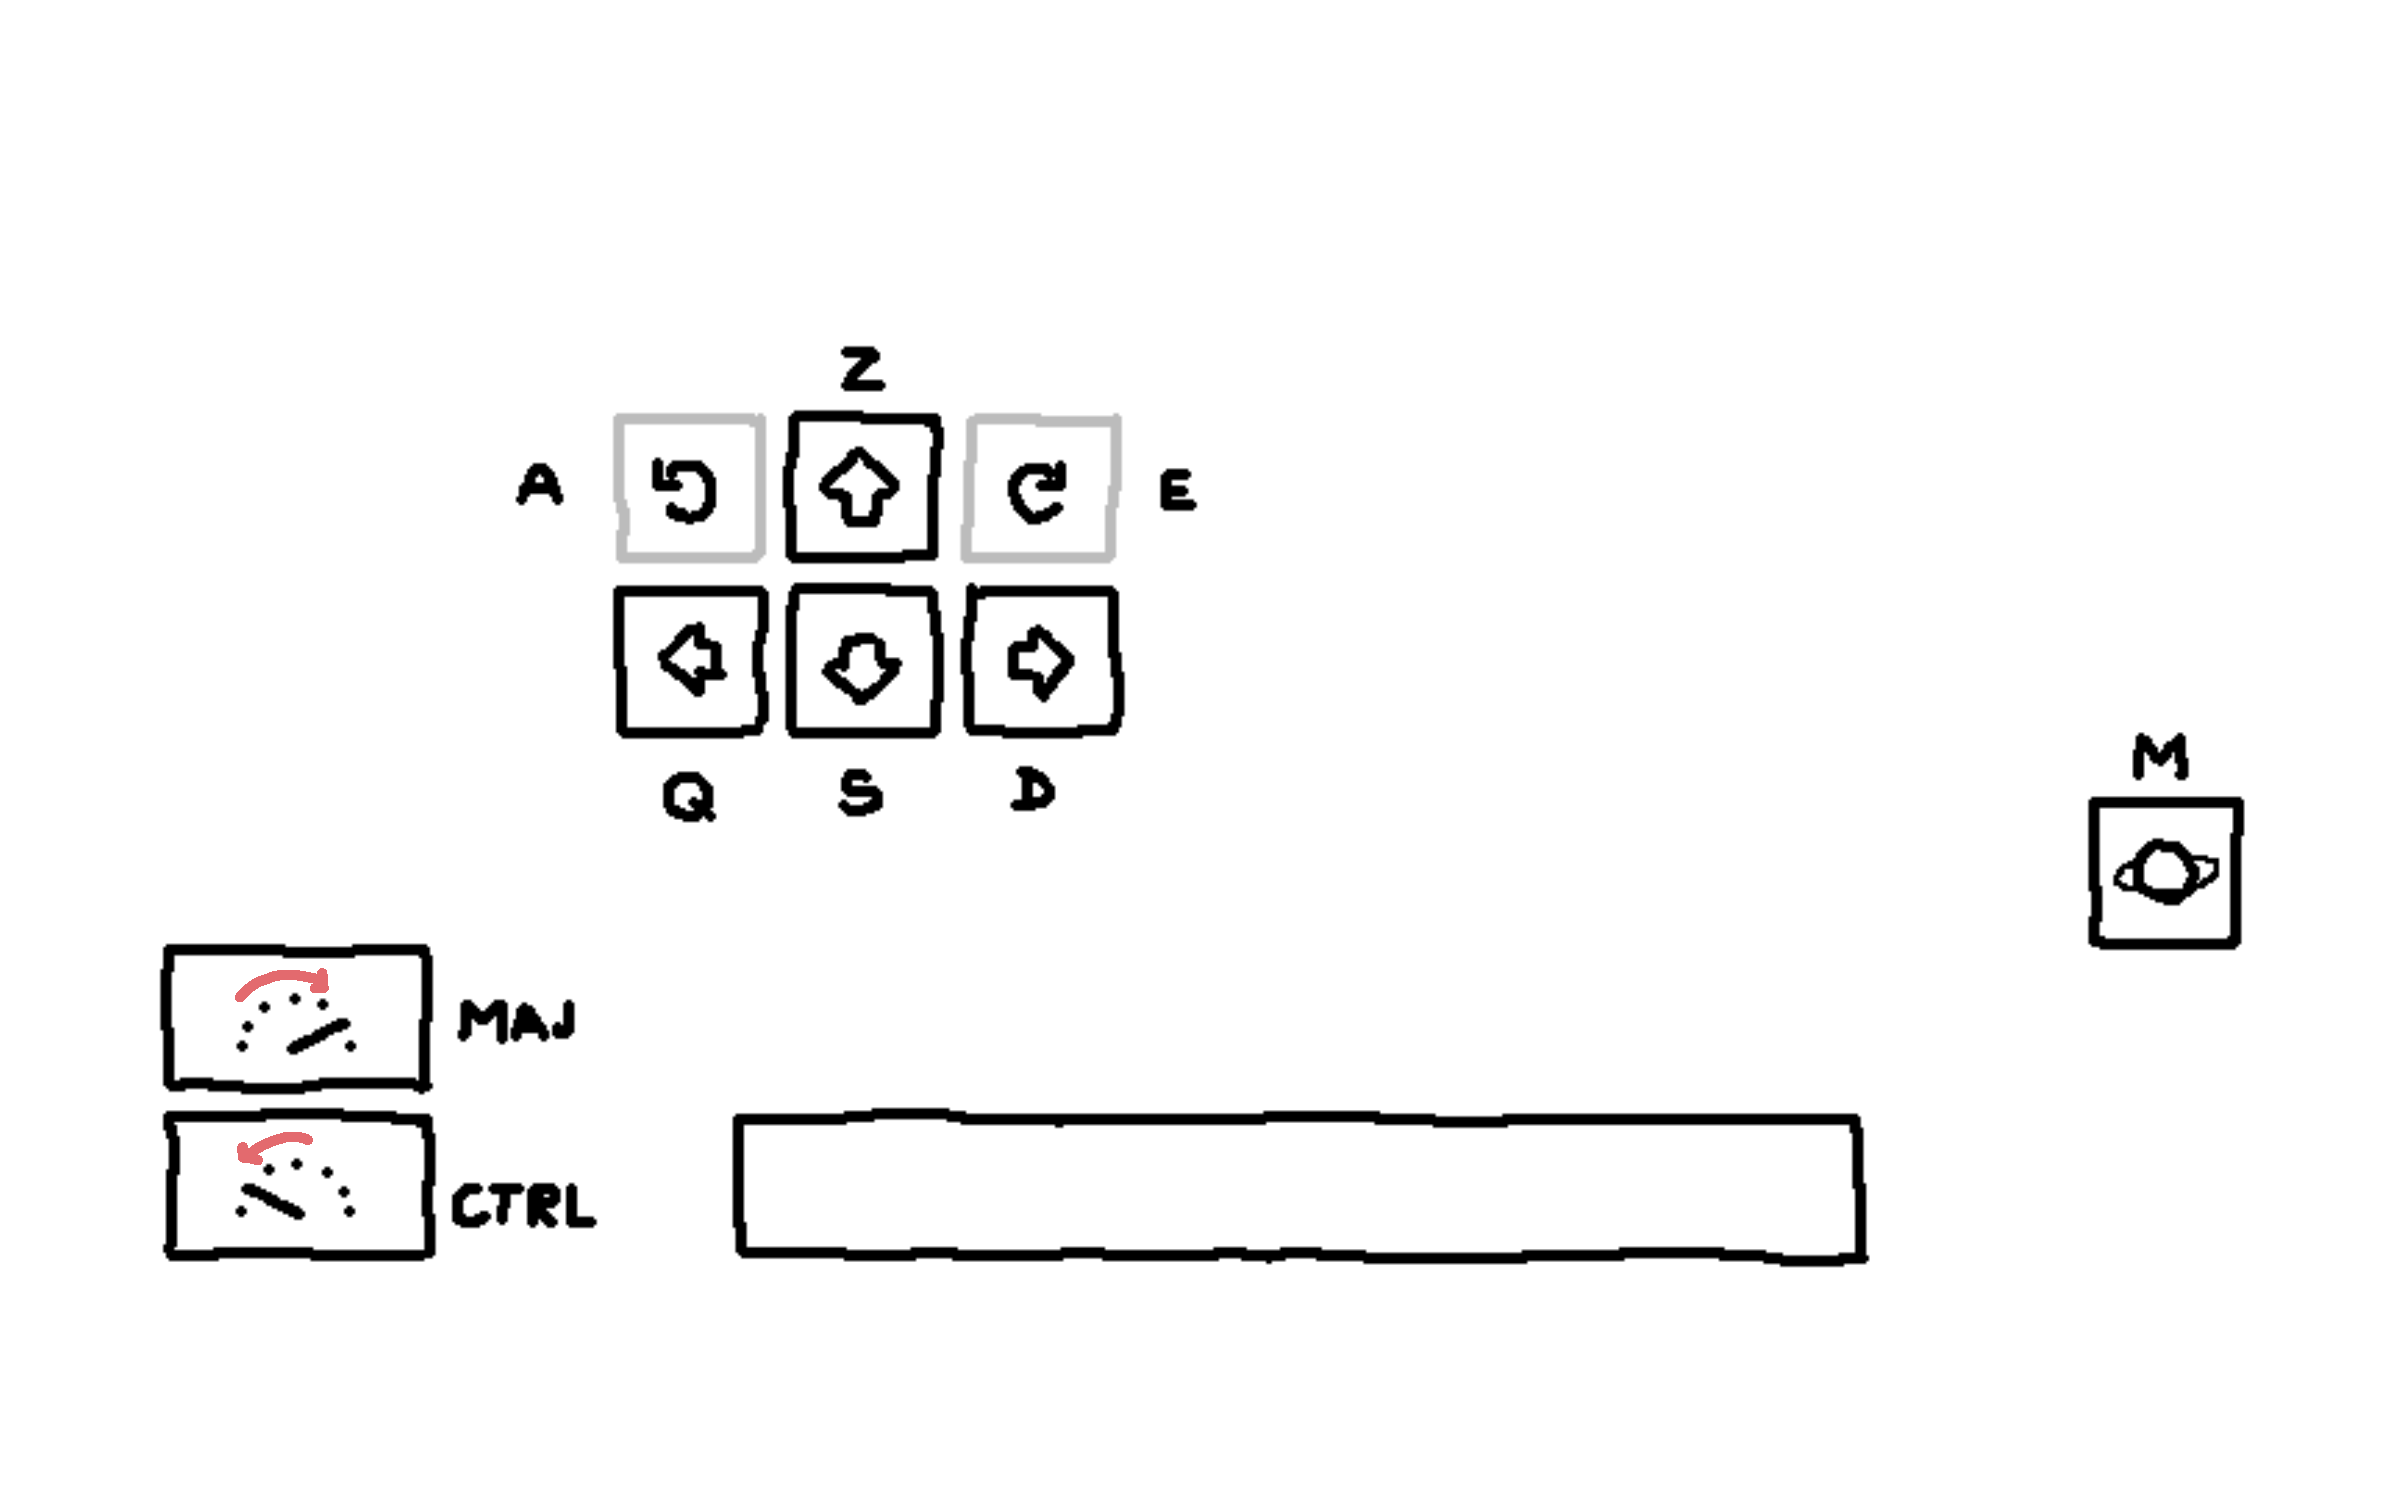 Z
A E
Q S D
M
MAJ
CTRL